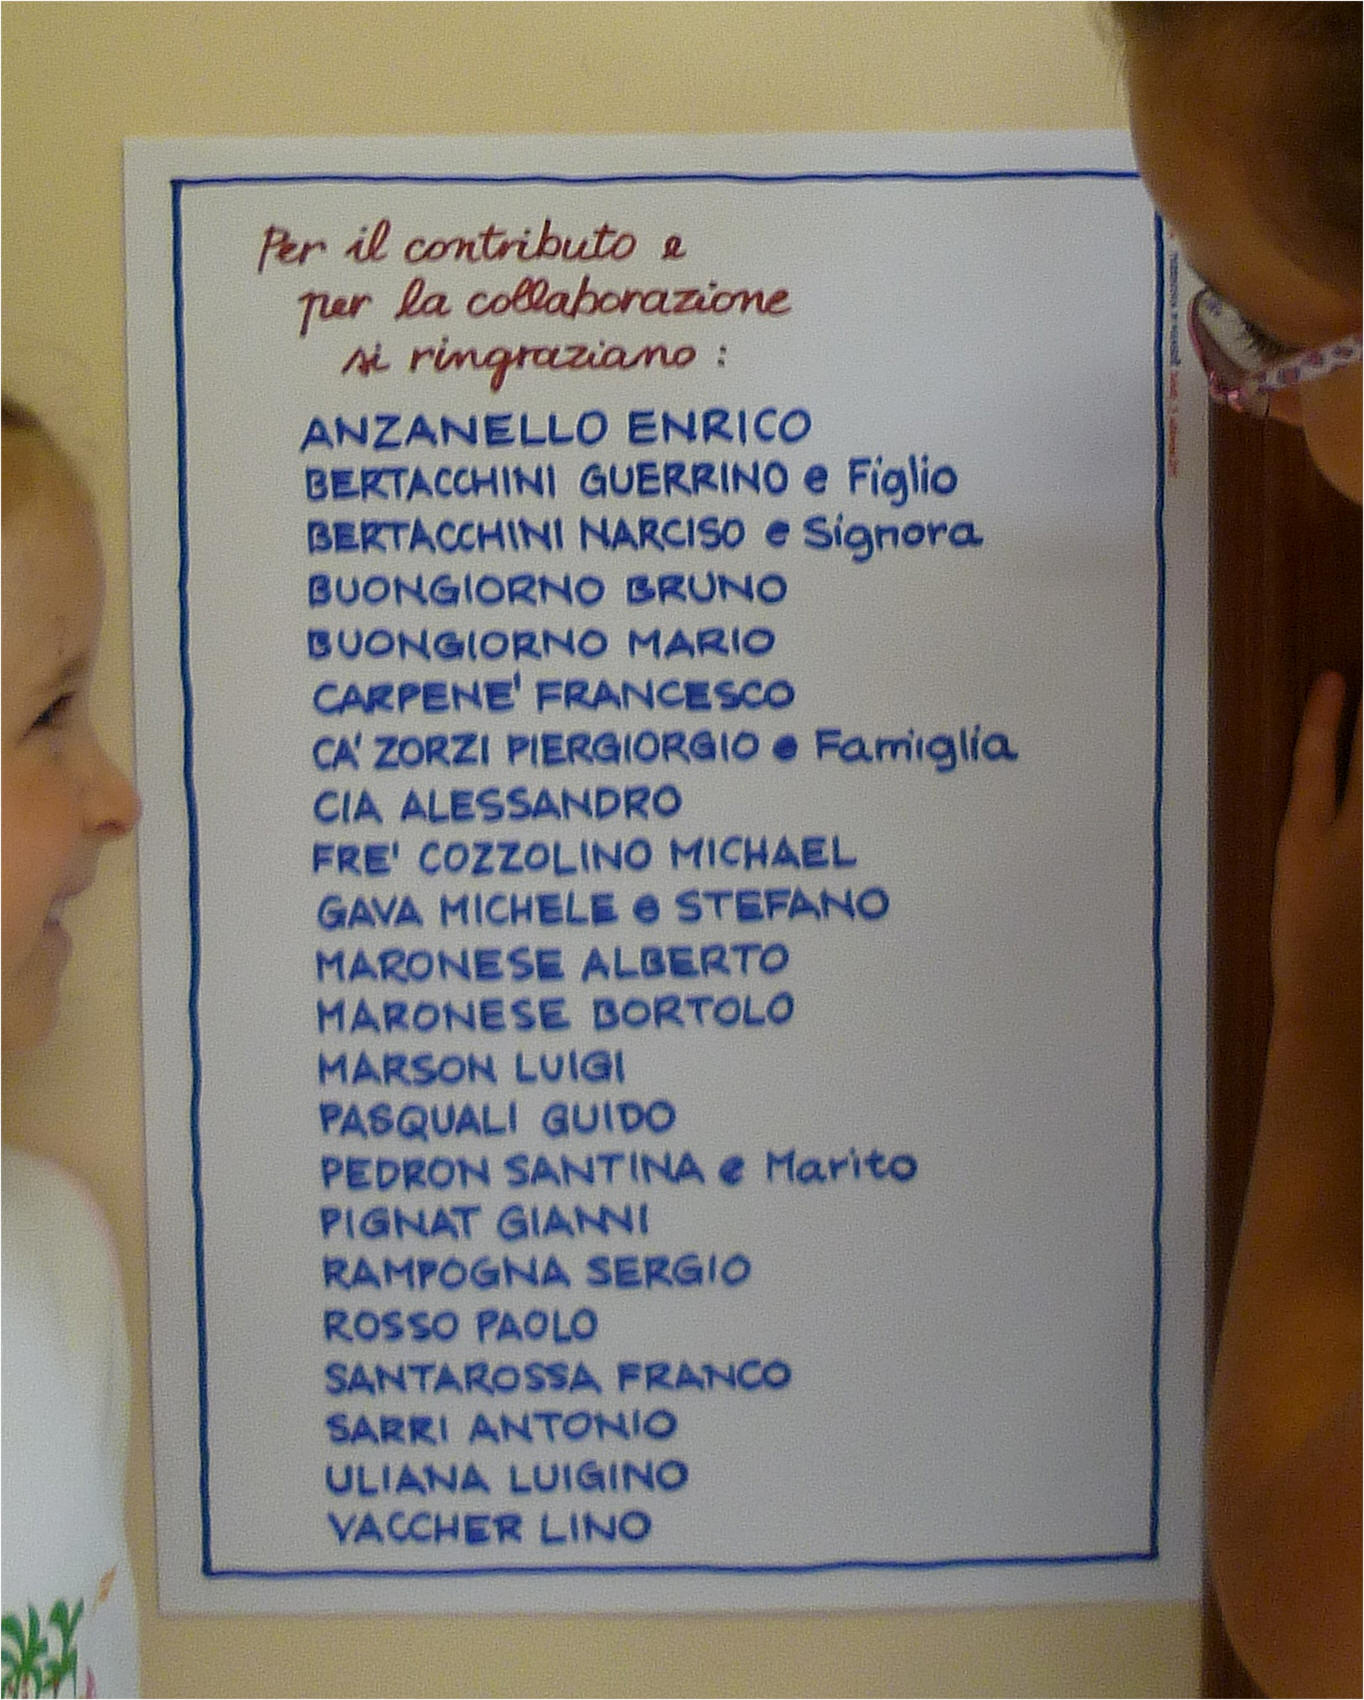 Per il contributo e
per la collaborazione
si ringraziano :
ANZANELLO ENRICO
BERTACCHINI GUERRINO e Figlio
BERTACCHINI NARCISO e Signora
BUONGIORNO BRUNO
BUONGIORNO MARIO
CARPENE' FRANCESCO
CA' ZORZI PIERGIORGIO e Famiglia
CIA ALESSANDRO
FRE' COZZOLINO MICHAEL
GAVA MICHELE e STEFANO
MARONESE ALBERTO
MARONESE BORTOLO
MARSON LUIGI
PASQUALI GUIDO
PEDRON SANTINA e Marito
PIGNAT GIANNI
RAMPOGNA SERGIO
ROSSO PAOLO
SANTAROSSA FRANCO
SARRI ANTONIO
ULIANA LUIGINO
VACCHER LINO